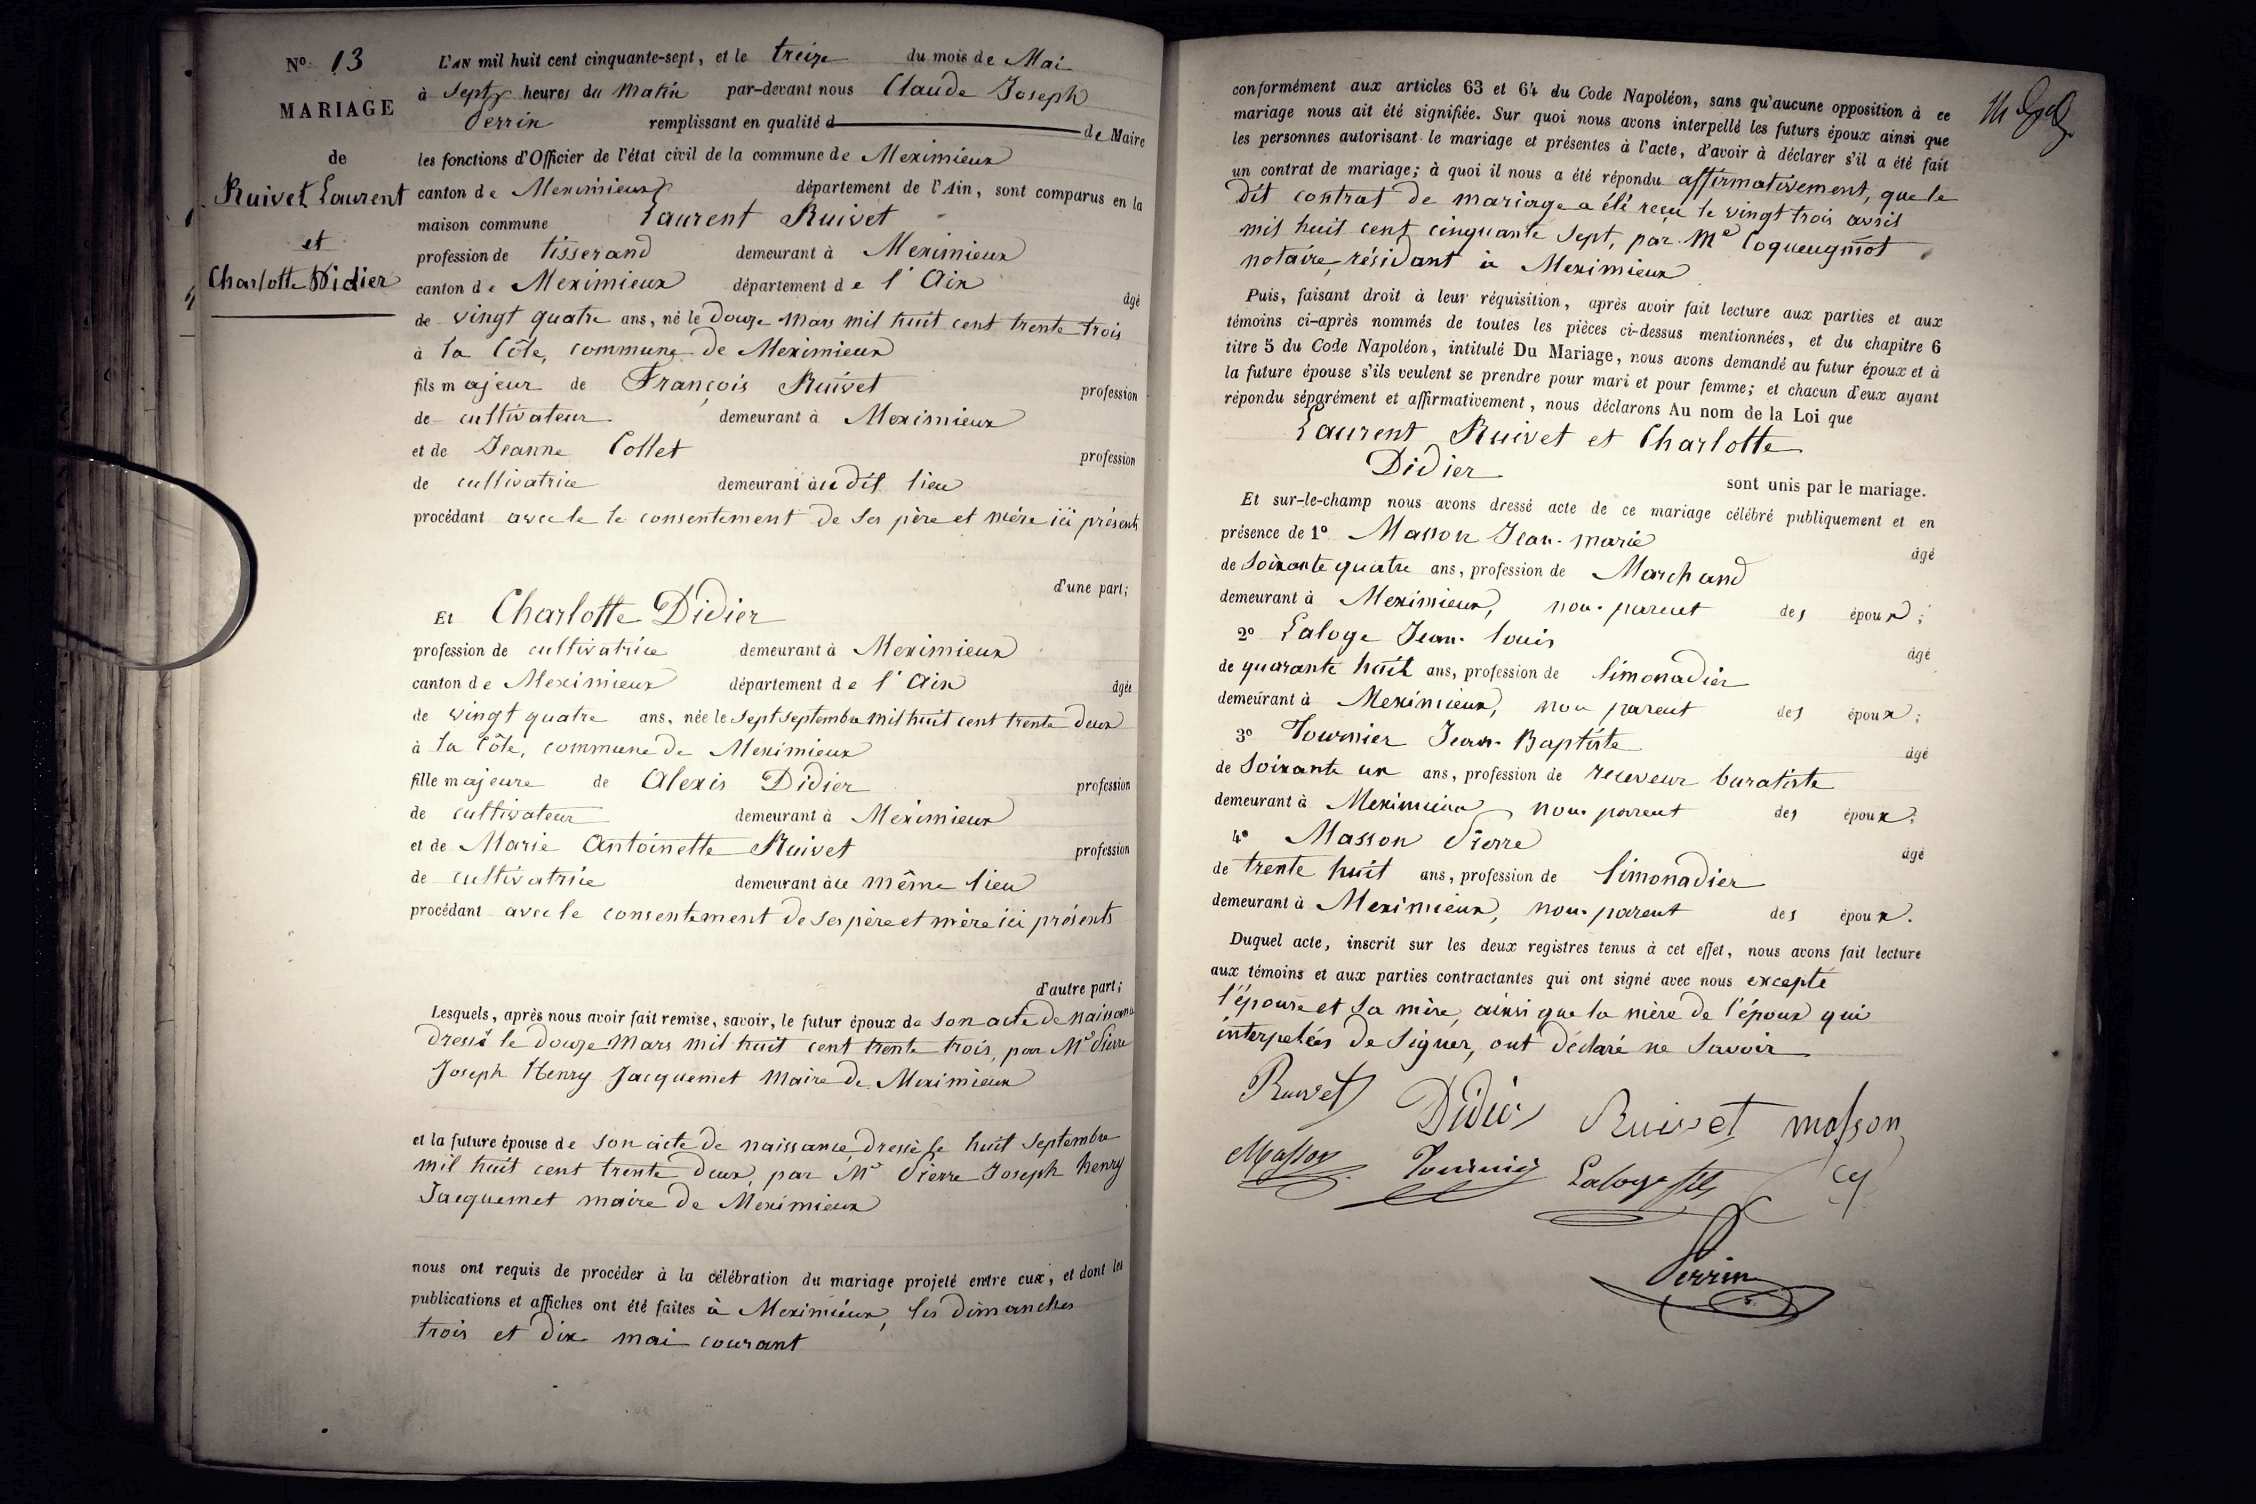 N° 13
MARIAGE
de
Ruivet Laurent
et
Charlotte Didier
L'AN mil huit cent cinquante-sept, et le treize du mois de Mai
à sept heures du matin par-devant nous Claude Joseph
Perrin remplissant en qualité de Maire
les fonctions d'Officier de l'état civil de la commune de Meximieux
canton de Meximieux département de l'Ain, sont comparus en la
maison commune Laurent Ruivet
profession de tisserand demeurant à Meximieux
canton de Meximieux département de l'Ain âgé
de vingt quatre ans, né le Douze Mars mil huit cent trente trois
à la Côte, commune de Meximieux
fils majeur de François Ruivet profession
de cultivateur demeurant à Meximieux
et de Jeanne Collet profession
de cultivatrice demeurant au dit lieu
procédant avec le le consentement de ses père et mère ici présents
d'une part;
Et Charlotte Didier
profession de cultivatrice demeurant à Meximieux
canton de Meximieux département de l'Ain âgée
de vingt quatre ans, née le sept septembre mil huit cent trente deux
à la Côte, commune de Meximieux
fille majeure de Alexis Didier profession
de cultivateur demeurant à Meximieux
et de Marie Antoinette Ruivet profession
de cultivatrice demeurant au même lieu
procédant avec le consentement de ses père et mère ici présents
d'autre part;
Lesquels, après nous avoir fait remise, savoir, le futur époux de son acte de naissance
dressé le douze Mars mil huit cent trente trois, par Mr Pierre
Joseph Henry Jacquemet Maire de Meximieux
et la future épouse de son acte de naissance dressé le huit septembre
mil huit cent trente deux, par Mr Pierre Joseph henry
Jacquemet maire de Meximieux
nous ont requis de procéder à la célébration du mariage projeté entre eux, et dont les
publications et affiches ont été faites à Meximieux, les dimanches
trois et dix mai courant
conformément aux articles 63 et 64 du Code Napoléon, sans qu'aucune opposition à ce
mariage nous ait été signifiée. Sur quoi nous avons interpellé les futurs époux ainsi que
les personnes autorisant le mariage et présentes à l'acte, d'avoir à déclarer s'il a été fait
un contrat de mariage; à quoi il nous a été répondu affirmativement, que le
dit contrat de mariage a été reçu le vingt trois avril
mil huit cent cinquante sept, par Me Coqueugniot
notaire, résidant à Meximieux
Puis, faisant droit à leur réquisition, après avoir fait lecture aux parties et aux
témoins ci-après nommés de toutes les pièces ci-dessus mentionnées, et du chapitre 6
titre 5 du Code Napoléon, intitulé Du Mariage, nous avons demandé au futur époux et à
la future épouse s'ils veulent se prendre pour mari et pour femme; et chacun d'eux ayant
répondu séparément et affirmativement, nous déclarons Au nom de la Loi que
Laurent Ruivet et Charlotte
Didier
sont unis par le mariage.
Et sur-le-champ nous avons dressé acte de ce mariage célébré publiquement et en
présence de 1° Masson Jean-marie âgé
de soixante quatre ans, profession de Marchand
demeurant à Meximieux, non-parent des époux;
2° Laloge Jean-louis âgé
de quarante huit ans, profession de limonadier
demeurant à Meximieux, non parent des époux;
3° Tournier Jean-Baptiste âgé
de soixante un ans, profession de receveur buraliste
demeurant à Meximieux non-parent des époux;
4° Masson Pierre âgé
de trente huit ans, profession de limonadier
demeurant à Meximieux, non-parent des époux.
Duquel acte, inscrit sur les deux registres tenus à cet effet, nous avons fait lecture
aux témoins et aux parties contractantes qui ont signé avec nous excepté
l'épouse et sa mère, ainsi que la mère de l'époux qui
interpelées de signer, ont déclaré ne savoir
Ruivet Didier Ruivet masson
Masson Tournier Laloge
Perrin